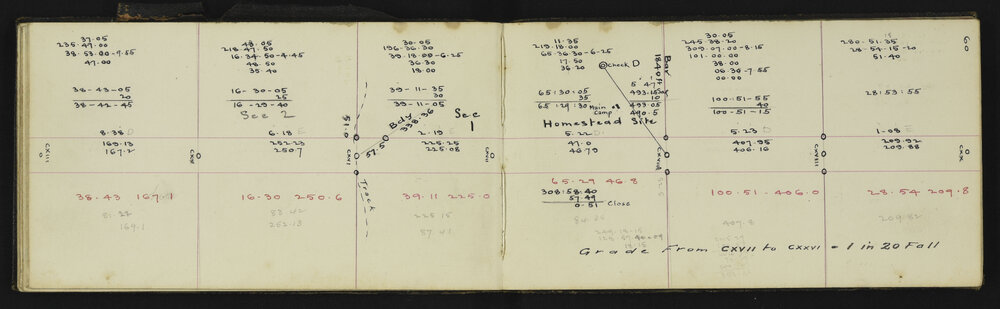 37.05
235.47.00
38.53.00-7.55
47.00
38-43-05
20
38-42-45
8-38 D
169.13
167.2
CXIII
38.43 167.1
169.1
48.05
218.47.50
16.34.50-4.45
48.50
35.40
16-30-05
25
16-29-40
See 2
6.18 E
252.23
250 7
CXV
16-30 250.6
83.42
252.13
51.0
CXVI
Track
Bdy
338.36
51.5
30-05
196-36.30
39.18.00-6.25
36.30
18.00
39-11-35
30
39-11-05
See
1
2-19 E
225.25
225.08
CXVII
39.11 225.0
225.15
87.41
11.35
219.18.00
65.36.30-6.25
17.50
36.20
@check D
65:30:05
35
65:29:30
Main of
Camp
Homestead Site
5.22 D
47.0
46.79
65-29 46.8
308:58.40
57.49
0-51 Close
Box
1840 ft
5.47
493.15
10
493.05
490.5
30.05
245.38.20
309.07.00-8.15
101.00
38.00
06.30-7.55
00.00
100:51-55
40
100-51-15
5.23 D
407.95
406.16
100.51. 406.0
407.8
CXVIII
60
280-51.35
28-54-15-20
51.40
28:53:55
1-09 E
209.92
209.88
CXIX
28.54 209.8
209.82
Grade From CXVII to CXXVI = 1 in 20 Fall